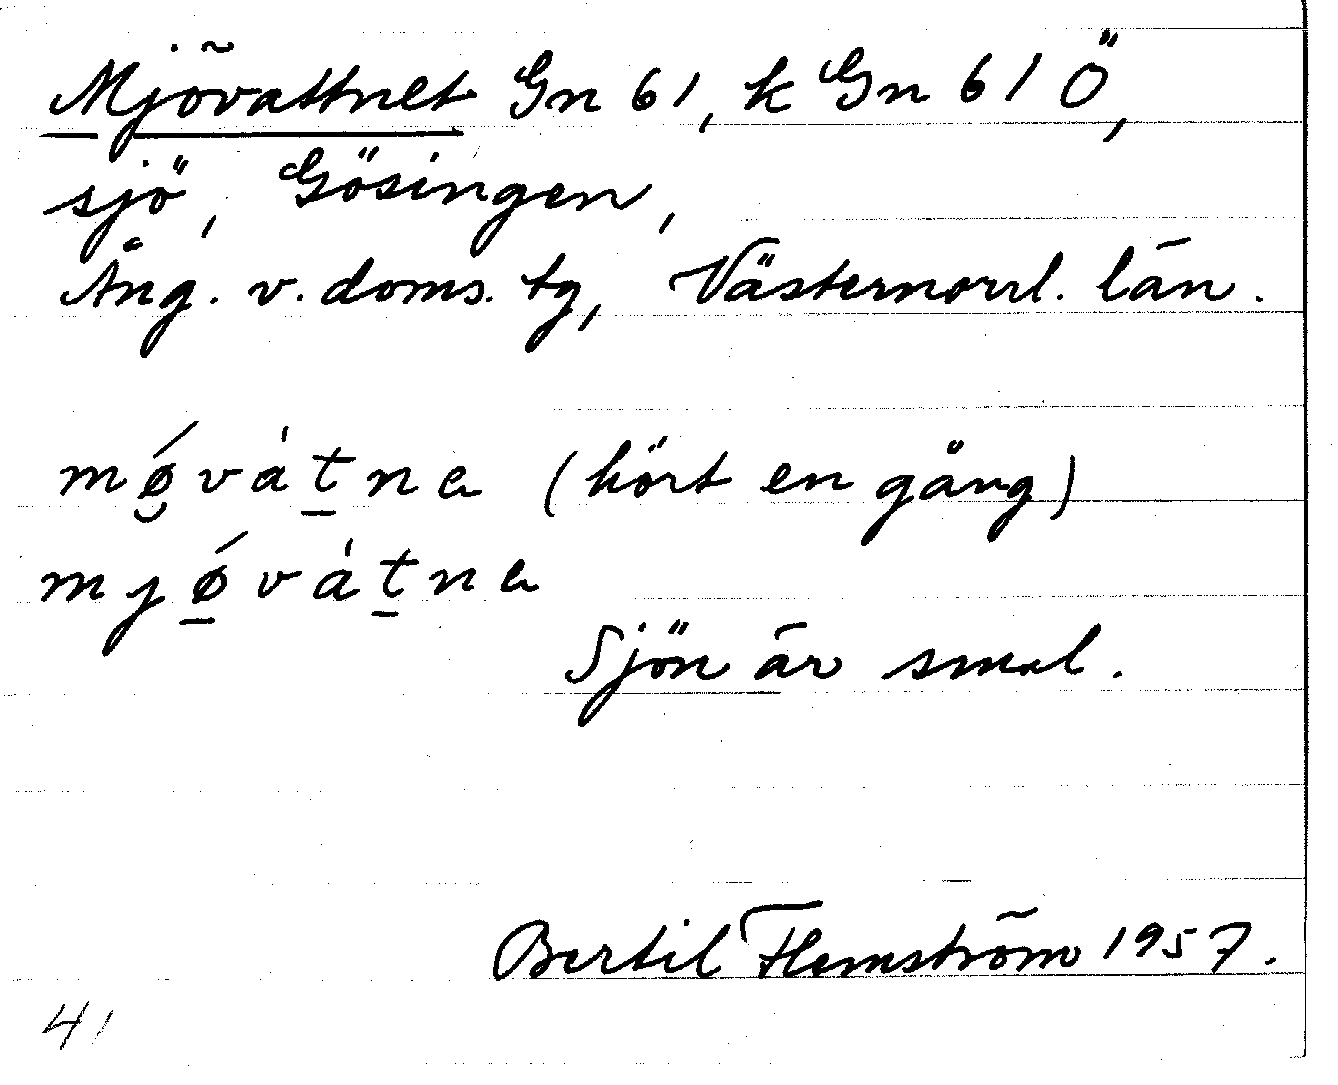 Mjövattnet Gn 61, k Gn 61 Ö,
sjö, Gösingen,
Ång. v. doms. tg, Västernorrl. län.
mǿvàt̠na (hört en gång)
mjǿ̠vàt̠na
Sjön är smal.
Bertil Flemström 1957.
41